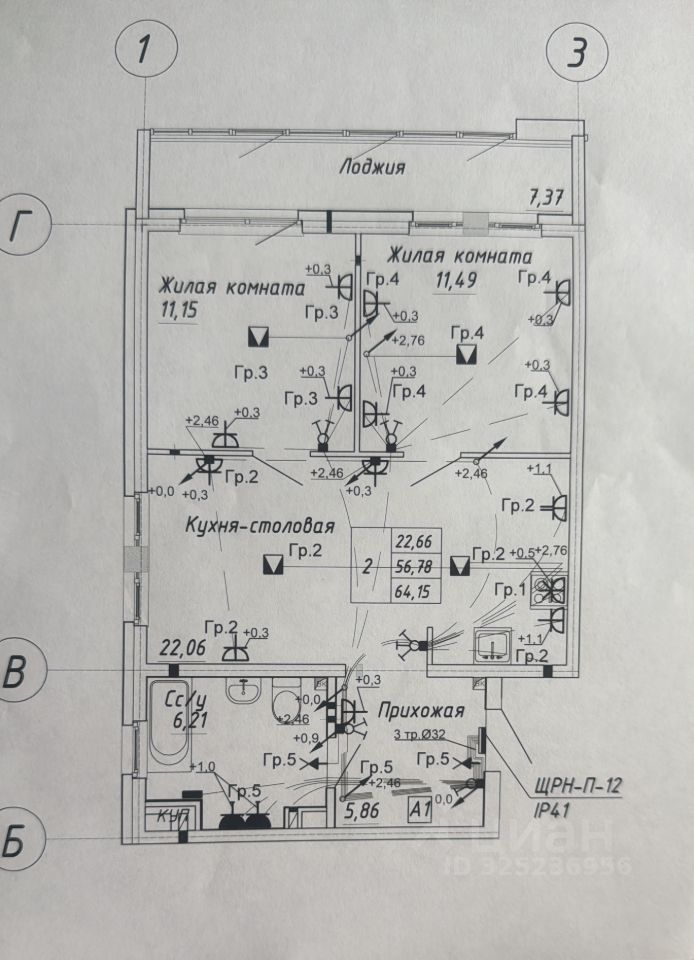 1
3
Лоджия
7,37
Г
Жилая комната
11,15
Жилая комната
11,49
+0,3
Гр.3
Гр.4
+0,3
+2,76
Гр.4
Гр.4
+0,3
Гр.3
+0,3
Гр.3
+0,3
Гр.4
+0,3
Гр.4
+2,46
+0,3
+0,0
+0,3
Гр.2
+2,46
+0,3
+2,46
+1,1
Гр.2
Кухня-столовая
Гр.2
2
22,66
56,78
64,15
Гр.2
+0.5
+2,76
Гр.1
Гр.2
+0.3
22,06
+1,1
Гр.2
В
Сс/у
6,21
+0,0
+2,46
+0,9
+0,3
ВК
ВК
Прихожая
3 тр.Ø32
Гр.5
Гр.5
Гр.5
+2,46
+1,0
Гр.5
0,0
5,86
А1
КУП
ЩРН-П-12
IP41
Б
циан
ID 325236956